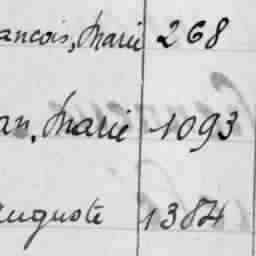 ancois, Marie 268
an, Marie 1093
Auguste 1384